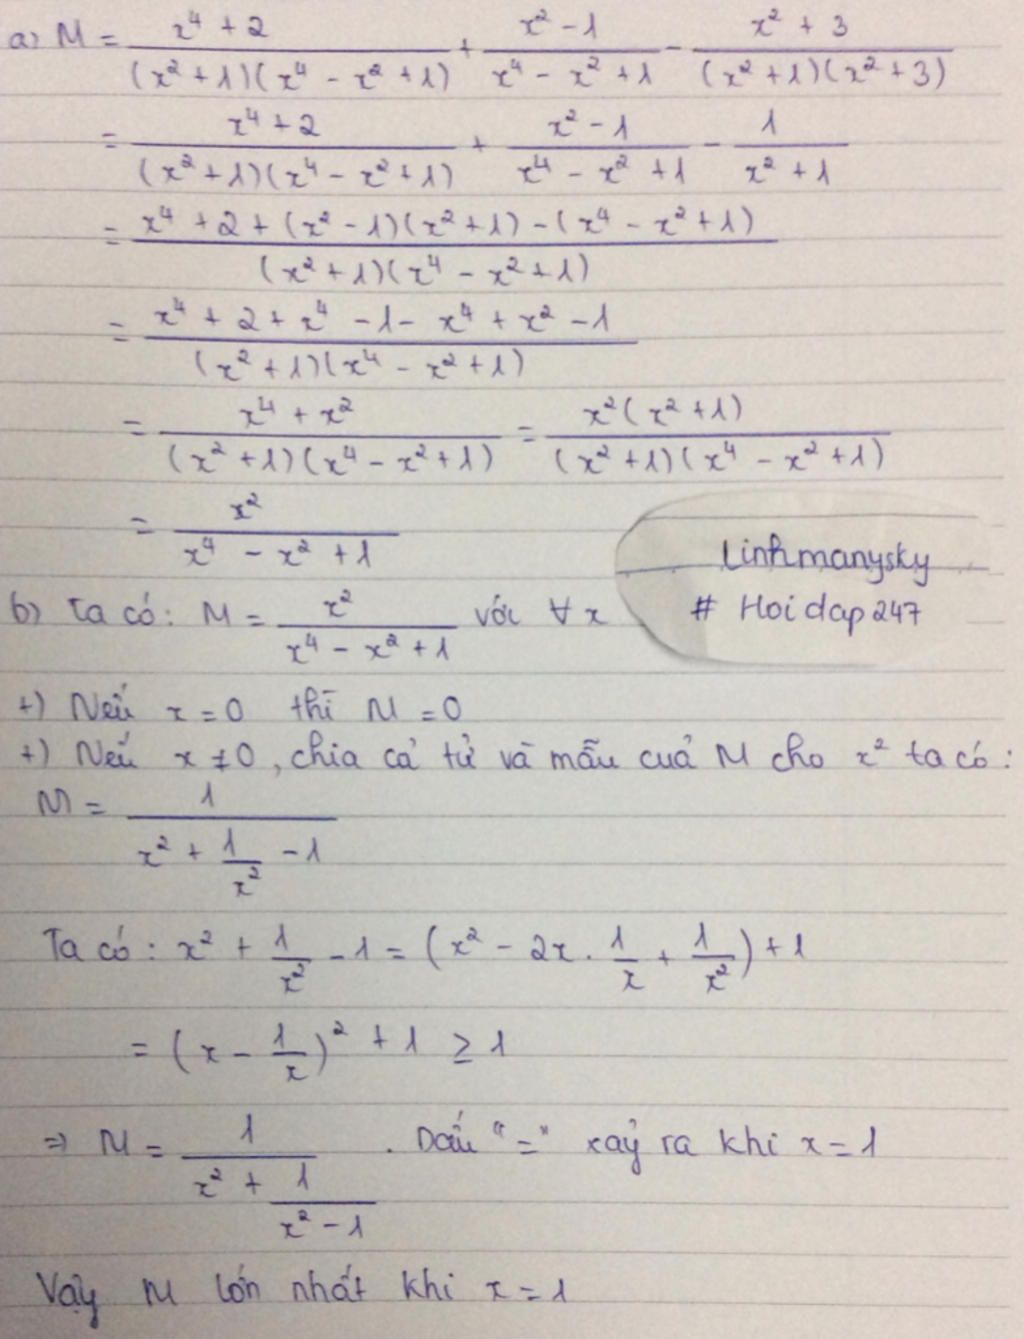 a) M = (x⁴ + 2)/((x² + 1)(x⁴ - x² + 1)) + (x² - 1)/(x⁴ - x² + 1) - (x² + 3)/((x² + 1)(x² + 3))
= (x⁴ + 2)/((x² + 1)(x⁴ - x² + 1)) + (x² - 1)/(x⁴ - x² + 1) - 1/(x² + 1)
= (x⁴ + 2 + (x² - 1)(x² + 1) - (x⁴ - x² + 1))/((x² + 1)(x⁴ - x² + 1))
= (x⁴ + 2 + x⁴ - 1 - x⁴ + x² - 1)/((x² + 1)(x⁴ - x² + 1))
= (x⁴ + x²)/((x² + 1)(x⁴ - x² + 1)) = (x²(x² + 1))/((x² + 1)(x⁴ - x² + 1))
= x²/(x⁴ - x² + 1)
Linhmanysky
# Hoidap247
b) Ta có: M = x²/(x⁴ - x² + 1) với ∀x
+) Nếu x = 0 thì M = 0
+) Nếu x ≠ 0, chia cả tử và mẫu của M cho x² ta có:
M = 1/(x² + 1/x² - 1)
Ta có: x² + 1/x² - 1 = (x² - 2x . 1/x + 1/x²) + 1
= (x - 1/x)² + 1 ≥ 1
⇒ M = 1/(x² + 1/(x² - 1)) . Dấu "=" xảy ra khi x = 1
Vậy M lớn nhất khi x = 1